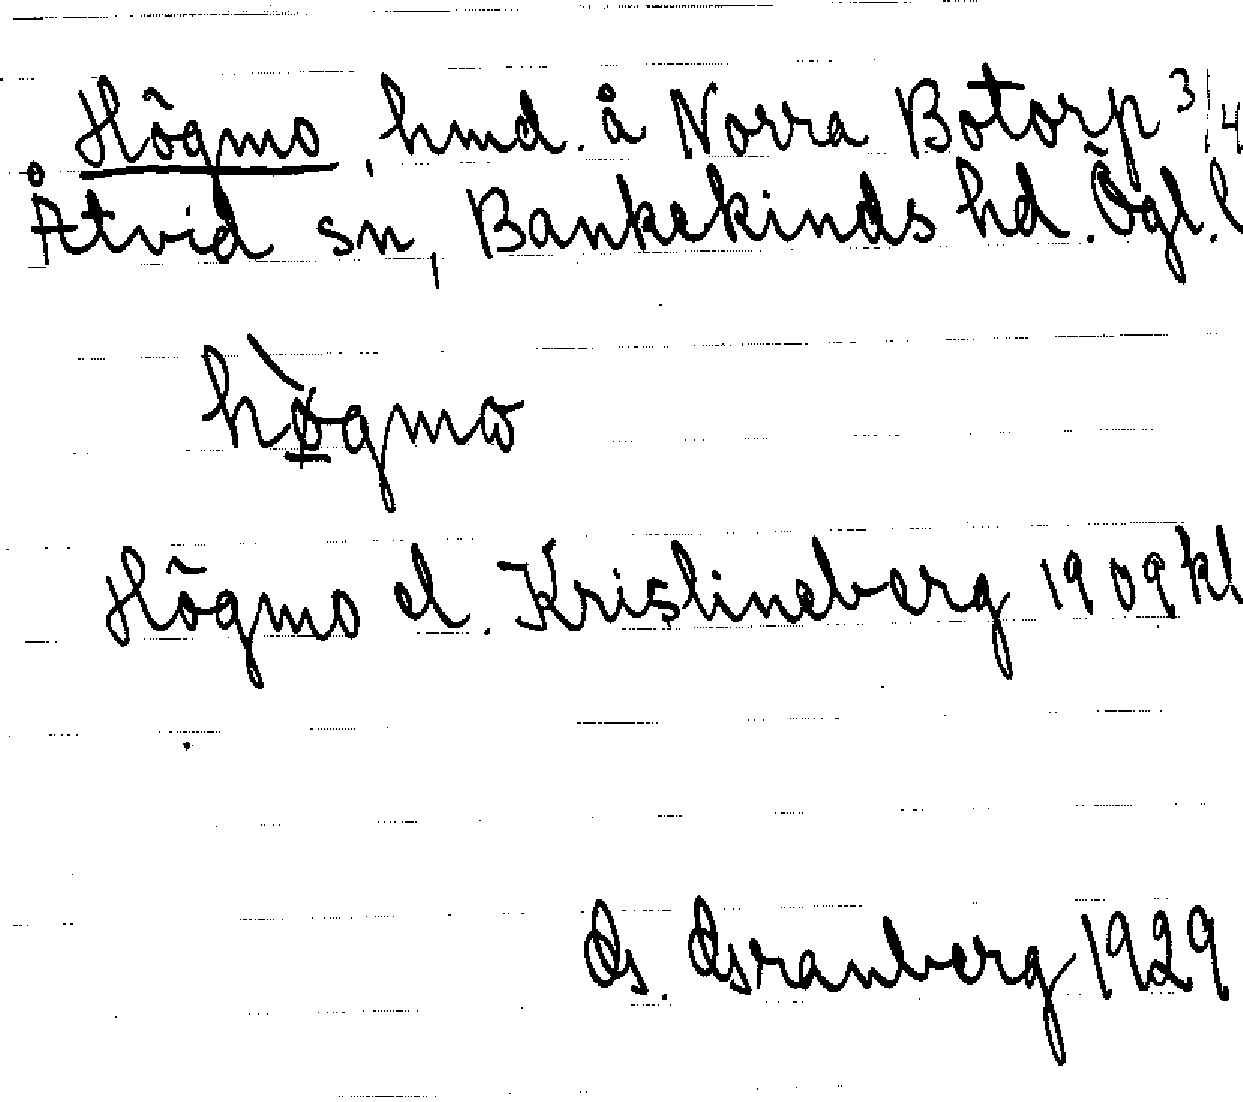 Högmo, hmd. å Norra Botorp 3/4
Åtvid sn, Bankekinds hd. Ögl. l
hògmω
Högmo el. Kristineberg 1909 kl
G. Granberg 1929